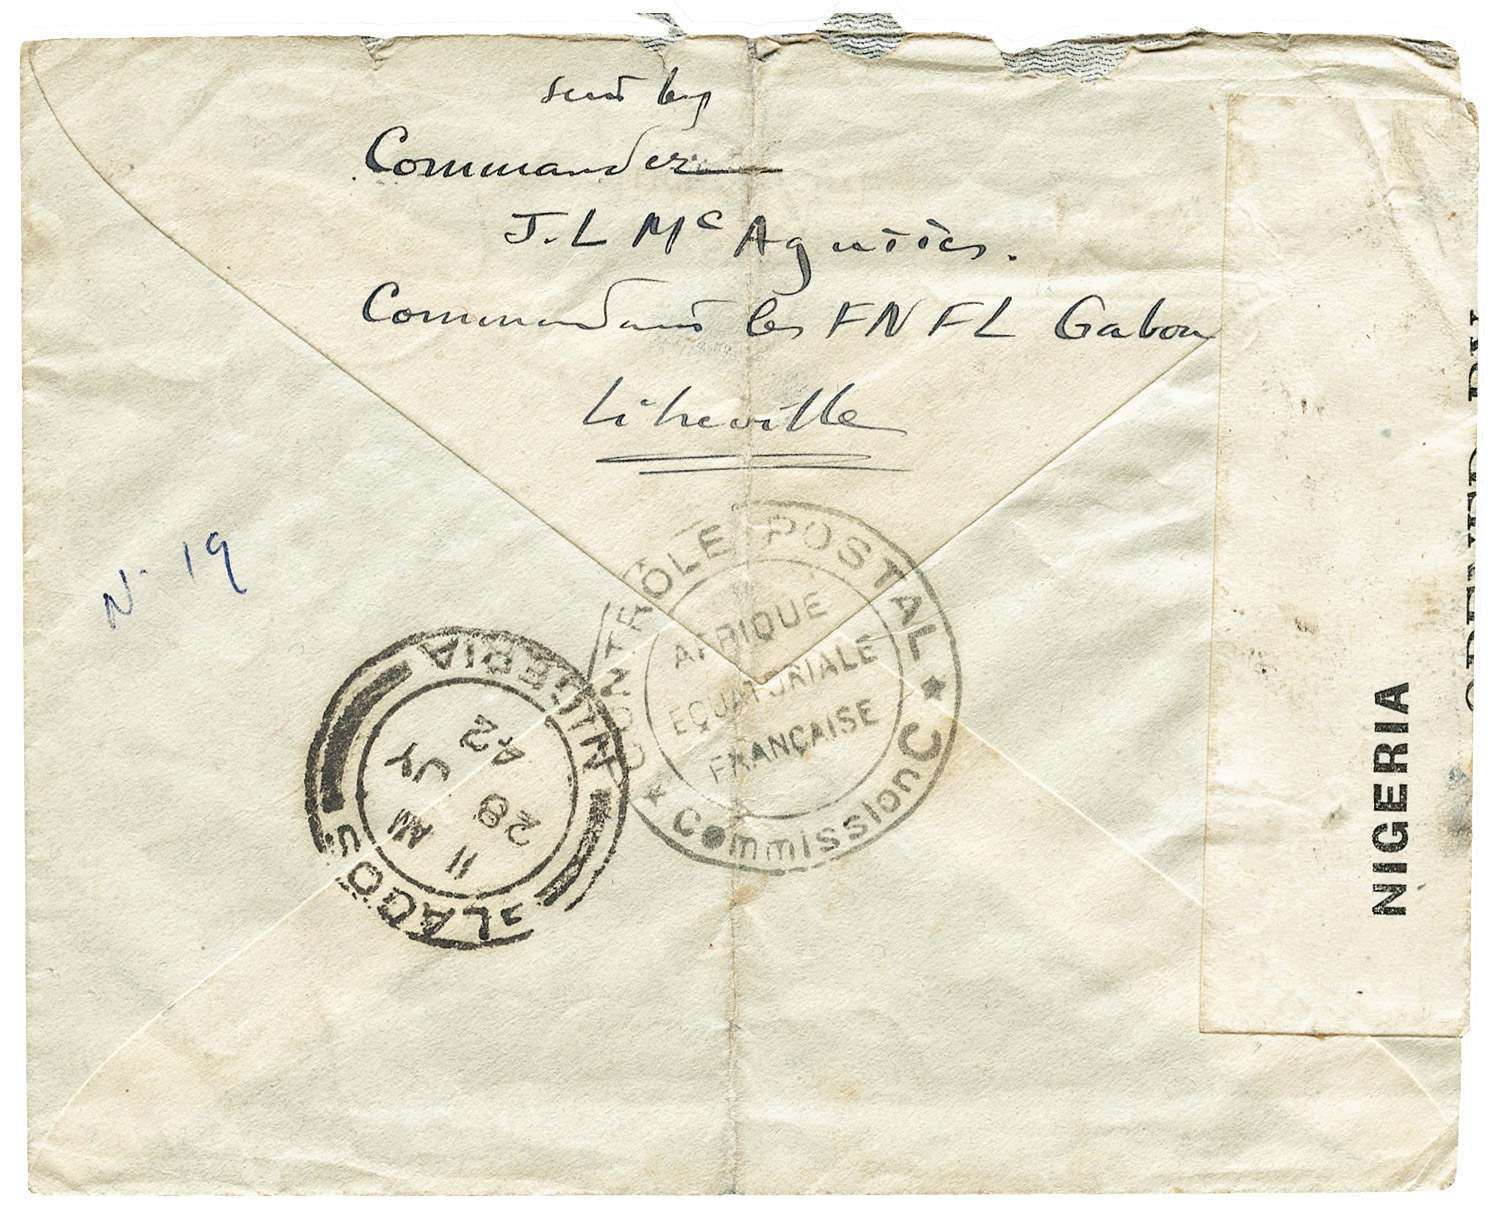 sent by
Commander
J. L Mc Aguttes.
Commandant les FNFL Gabon
Libreville
N. 19
CONTRÔLE POSTAL
AFRIQUE
EQUATORIALE
FRANÇAISE
* Commission C *
NIGERIA
11 AM
28 JY
42
LAGOS
OPENED BY
NIGERIA